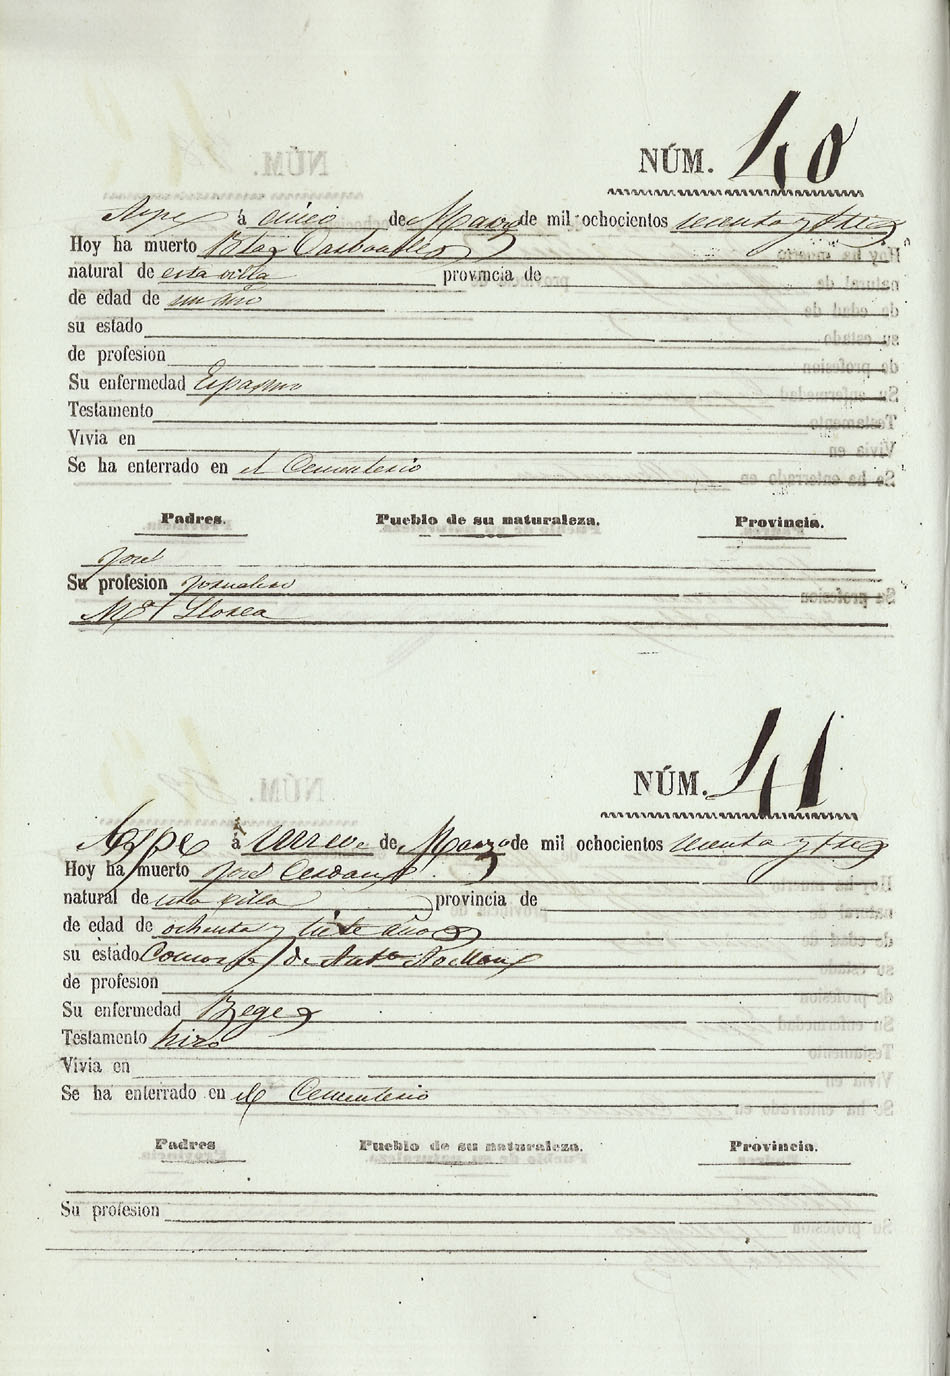 NÚM. 40
Aspe á cinco de Marzo de mil ochocientos sesenta y tres
Hoy ha muerto Blas Carbonell
natural de esta villa provincia de
de edad de un año
su estado
de profesion
Su enfermedad Espasmo
Testamento
Vivia en
Se ha enterrado en el Cementerio
Padres. Pueblo de su naturaleza. Provincia.
José
Su profesion Jornalero
Mª Llorca
NÚM. 41
Aspe á de Marzo de mil ochocientos sesenta y tres
Hoy ha muerto José Cerdan
natural de esta villa provincia de
de edad de ochenta y siete años
su estado Consorte de
de profesion
Su enfermedad Begez
Testamento hizo
Vivia en
Se ha enterrado en el Cementerio
Padres Pueblo de su naturaleza. Provincia.
Su profesion